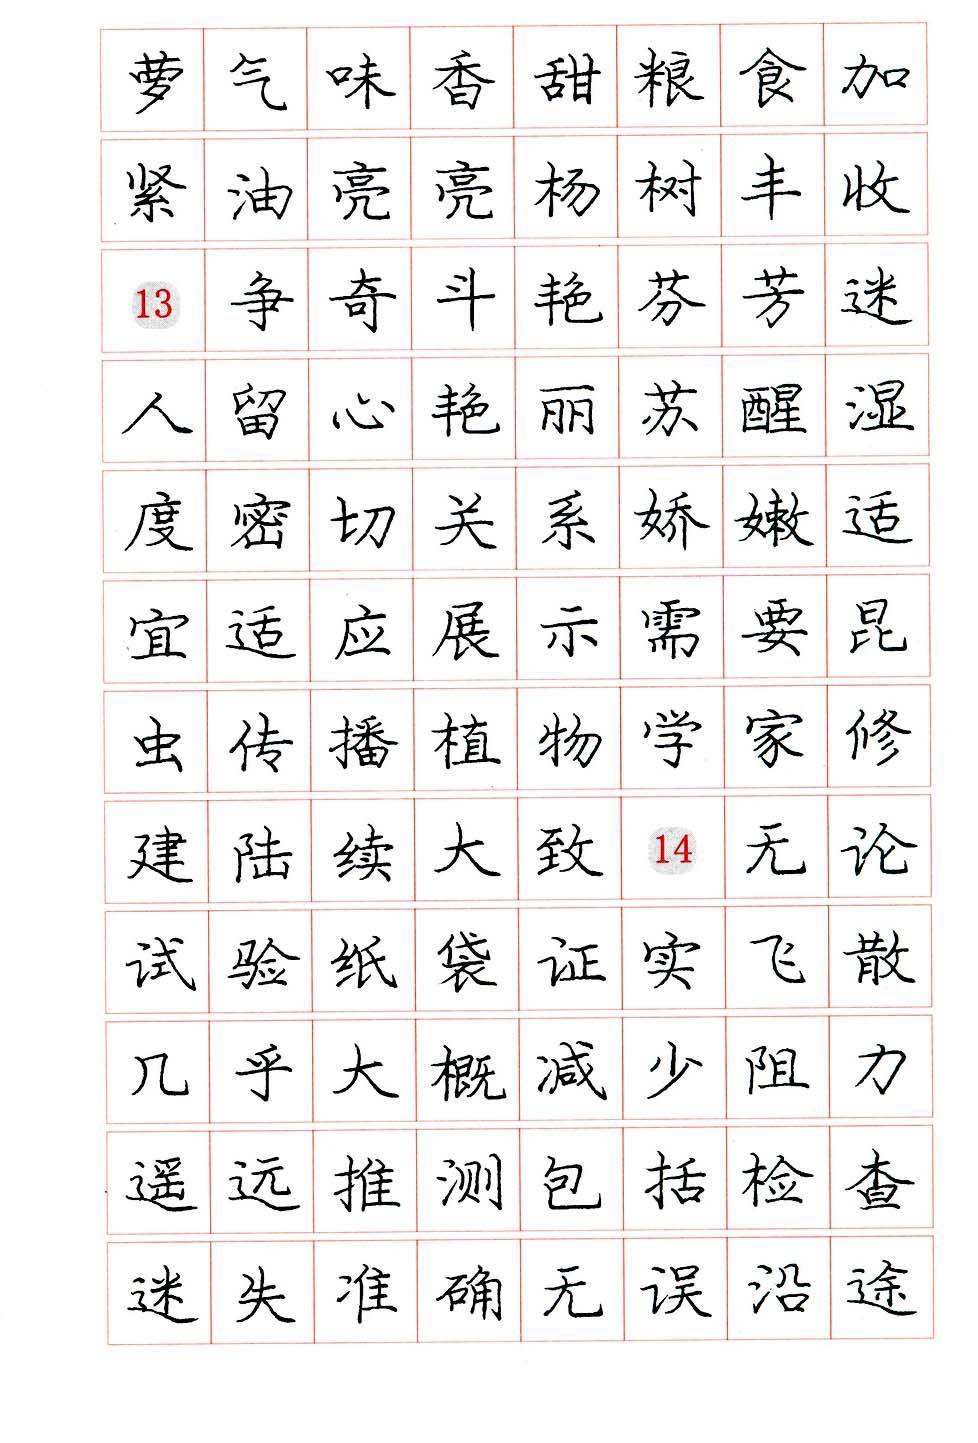 萝气味香甜粮食加
紧油亮亮杨树丰收
13争奇斗艳芬芳迷
人留心艳丽苏醒湿
度密切关系娇嫩适
宜适应展示需要昆
虫传播植物学家修
建陆续大致14无论
试验纸袋证实飞散
几乎大概减少阻力
遥远推测包括检查
迷失准确无误沿途